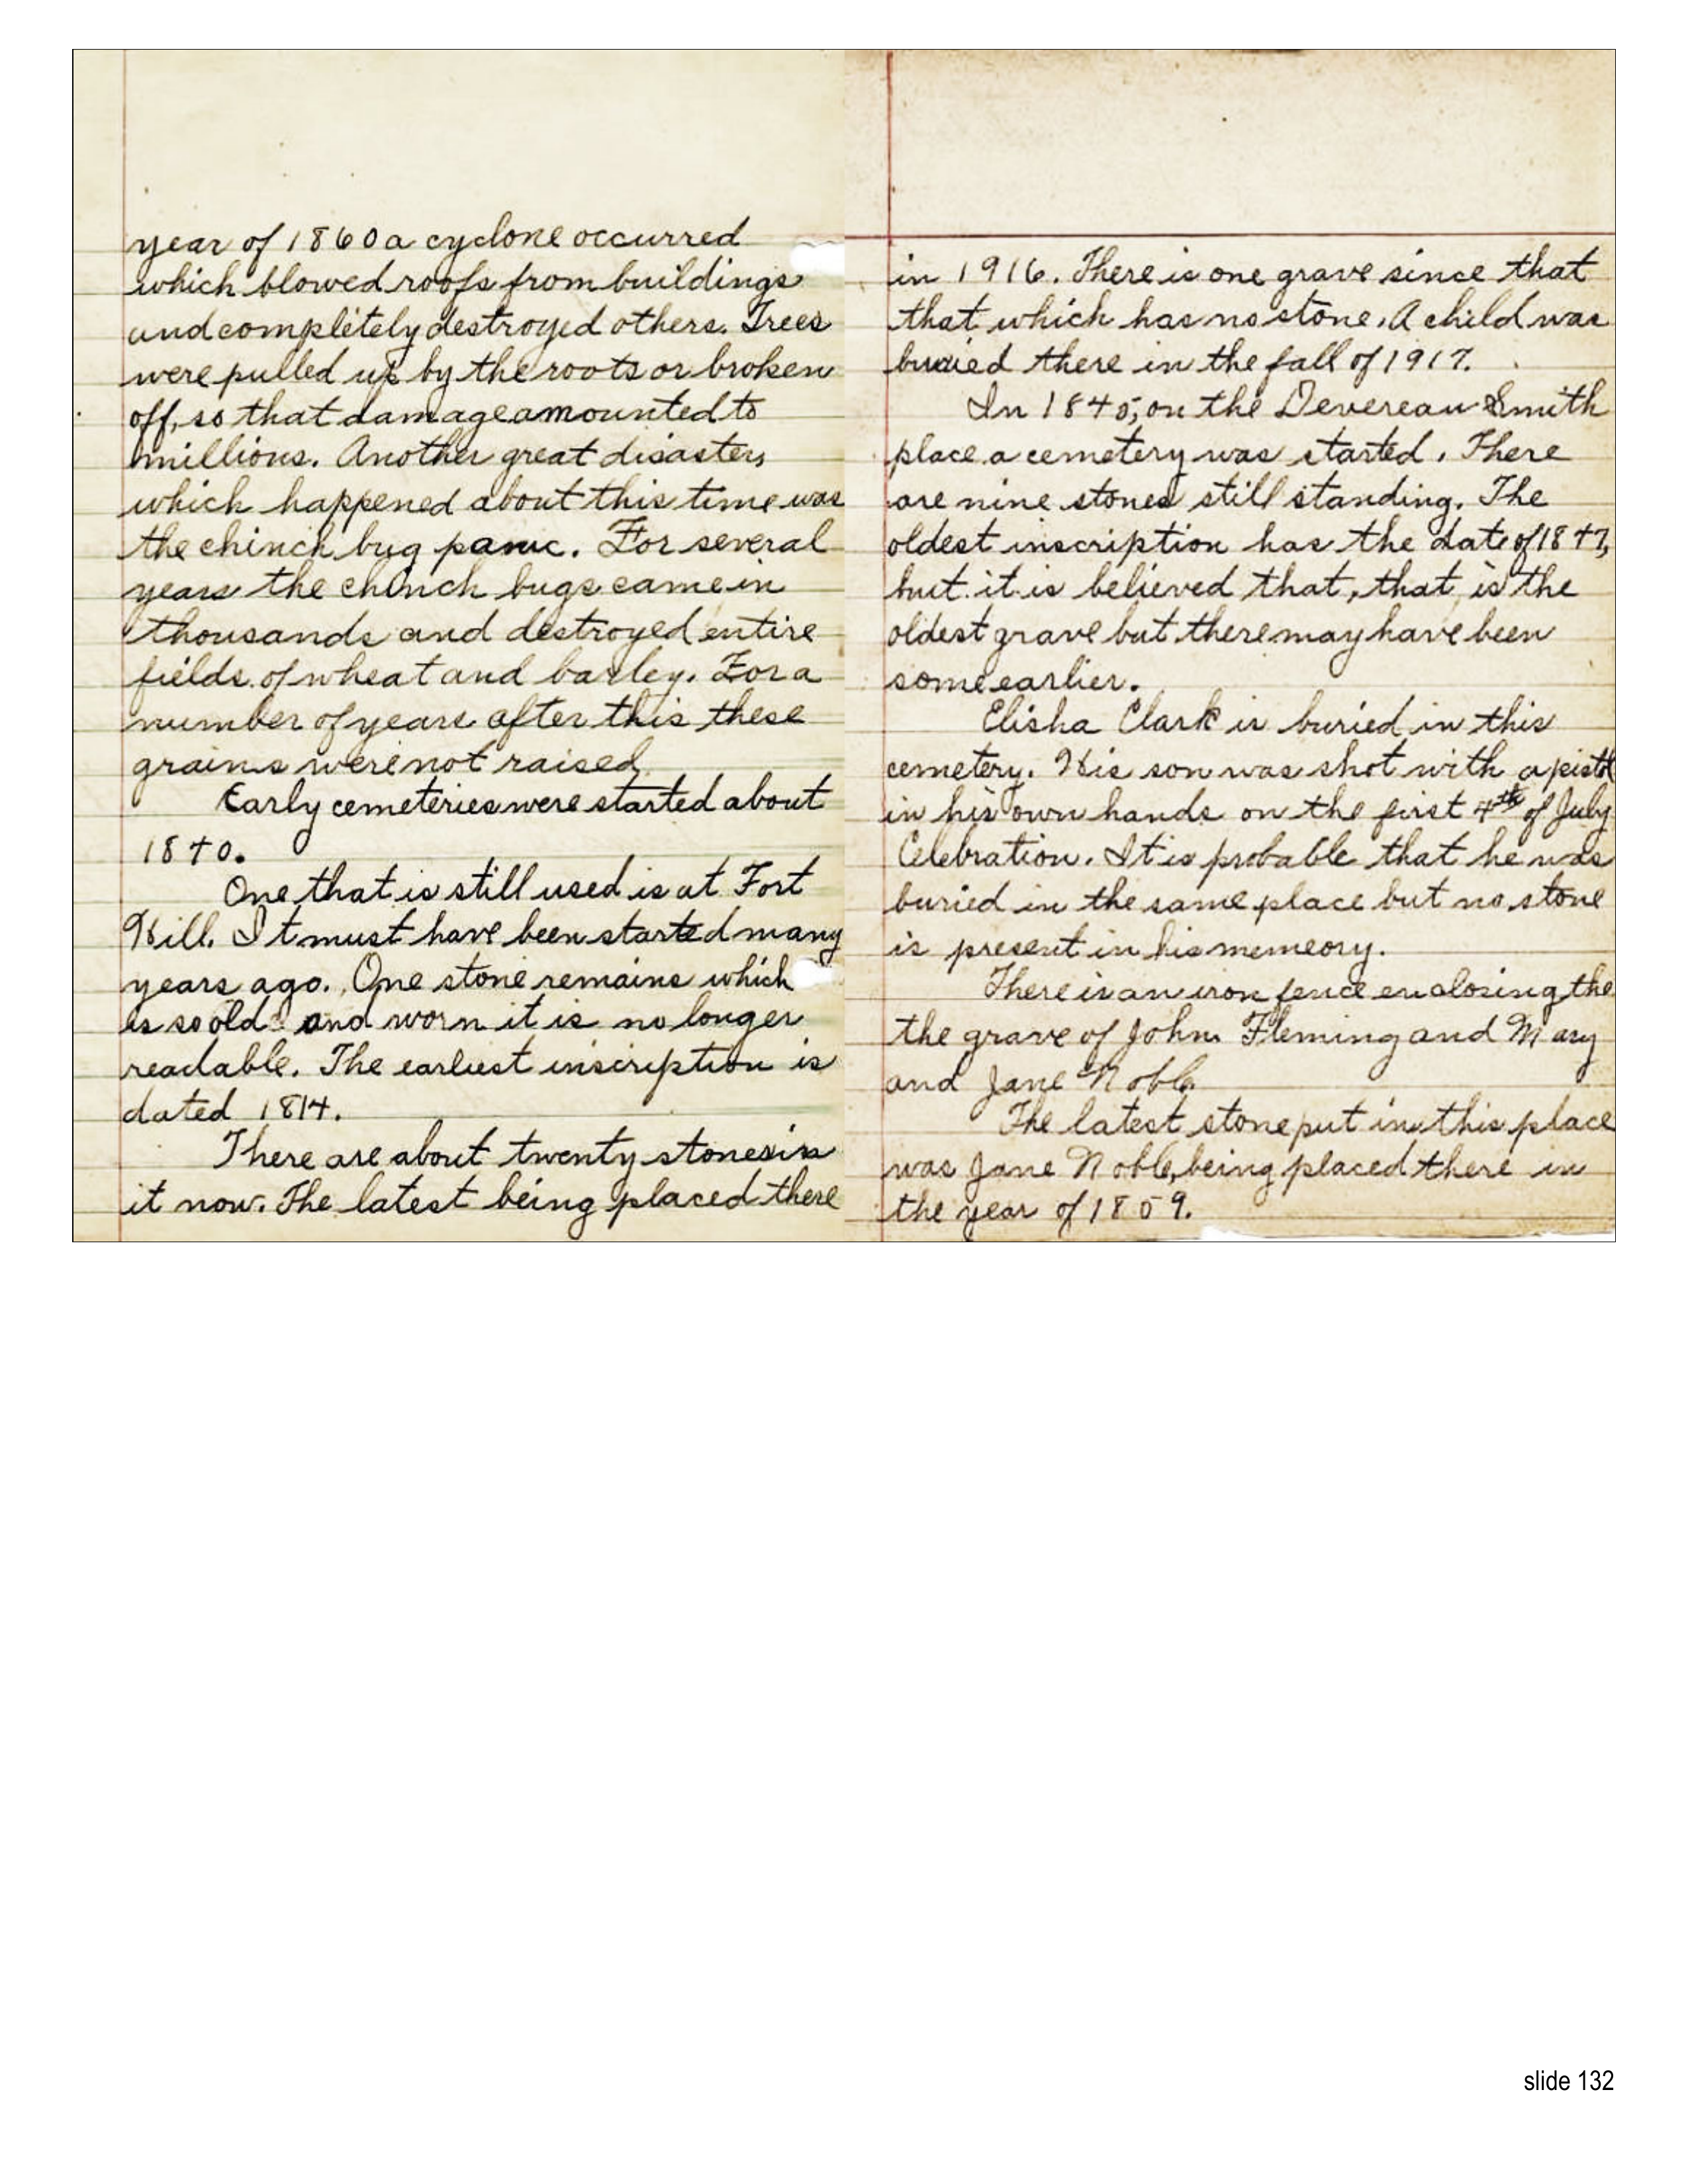 year of 1860 a cyclone occurred
which blowed roofs from buildings
and completely destroyed others. Trees
were pulled up by the roots or broken
off, so that damage amounted to
millions. Another great disaster,
which happened about this time was
the chinch bug panic. For several
years the chinch bugs came in
thousands and destroyed entire
fields of wheat and barley. For a
number of years after this these
grains were not raised.
Early cemeteries were started about
1840.
One that is still used is at Fort
Hill. It must have been started many
years ago. One stone remains which
is so old and worn it is no longer
readable. The earliest inscription is
dated 1814.
There are about twenty stones in
it now. The latest being placed there
in 1916. There is one grave since that
that which has no stone. A child was
buried there in the fall of 1917.
In 1845, on the Devereau Smith
place a cemetery was started. There
are nine stones still standing. The
oldest inscription has the date of 1847,
but it is believed that, that is the
oldest grave but there may have been
some earlier.
Elisha Clark is buried in this
cemetery. His son was shot with a pistol
in his own hands on the first 4th of July
Celebration. It is probable that he was
buried in the same place but no stone
is present in his memeory.
There is an iron fence enclosing the
the grave of John Fleming and Mary
and Jane Noble.
The latest stone put in this place
was Jane Noble, being placed there in
the year of 1859.
slide 132